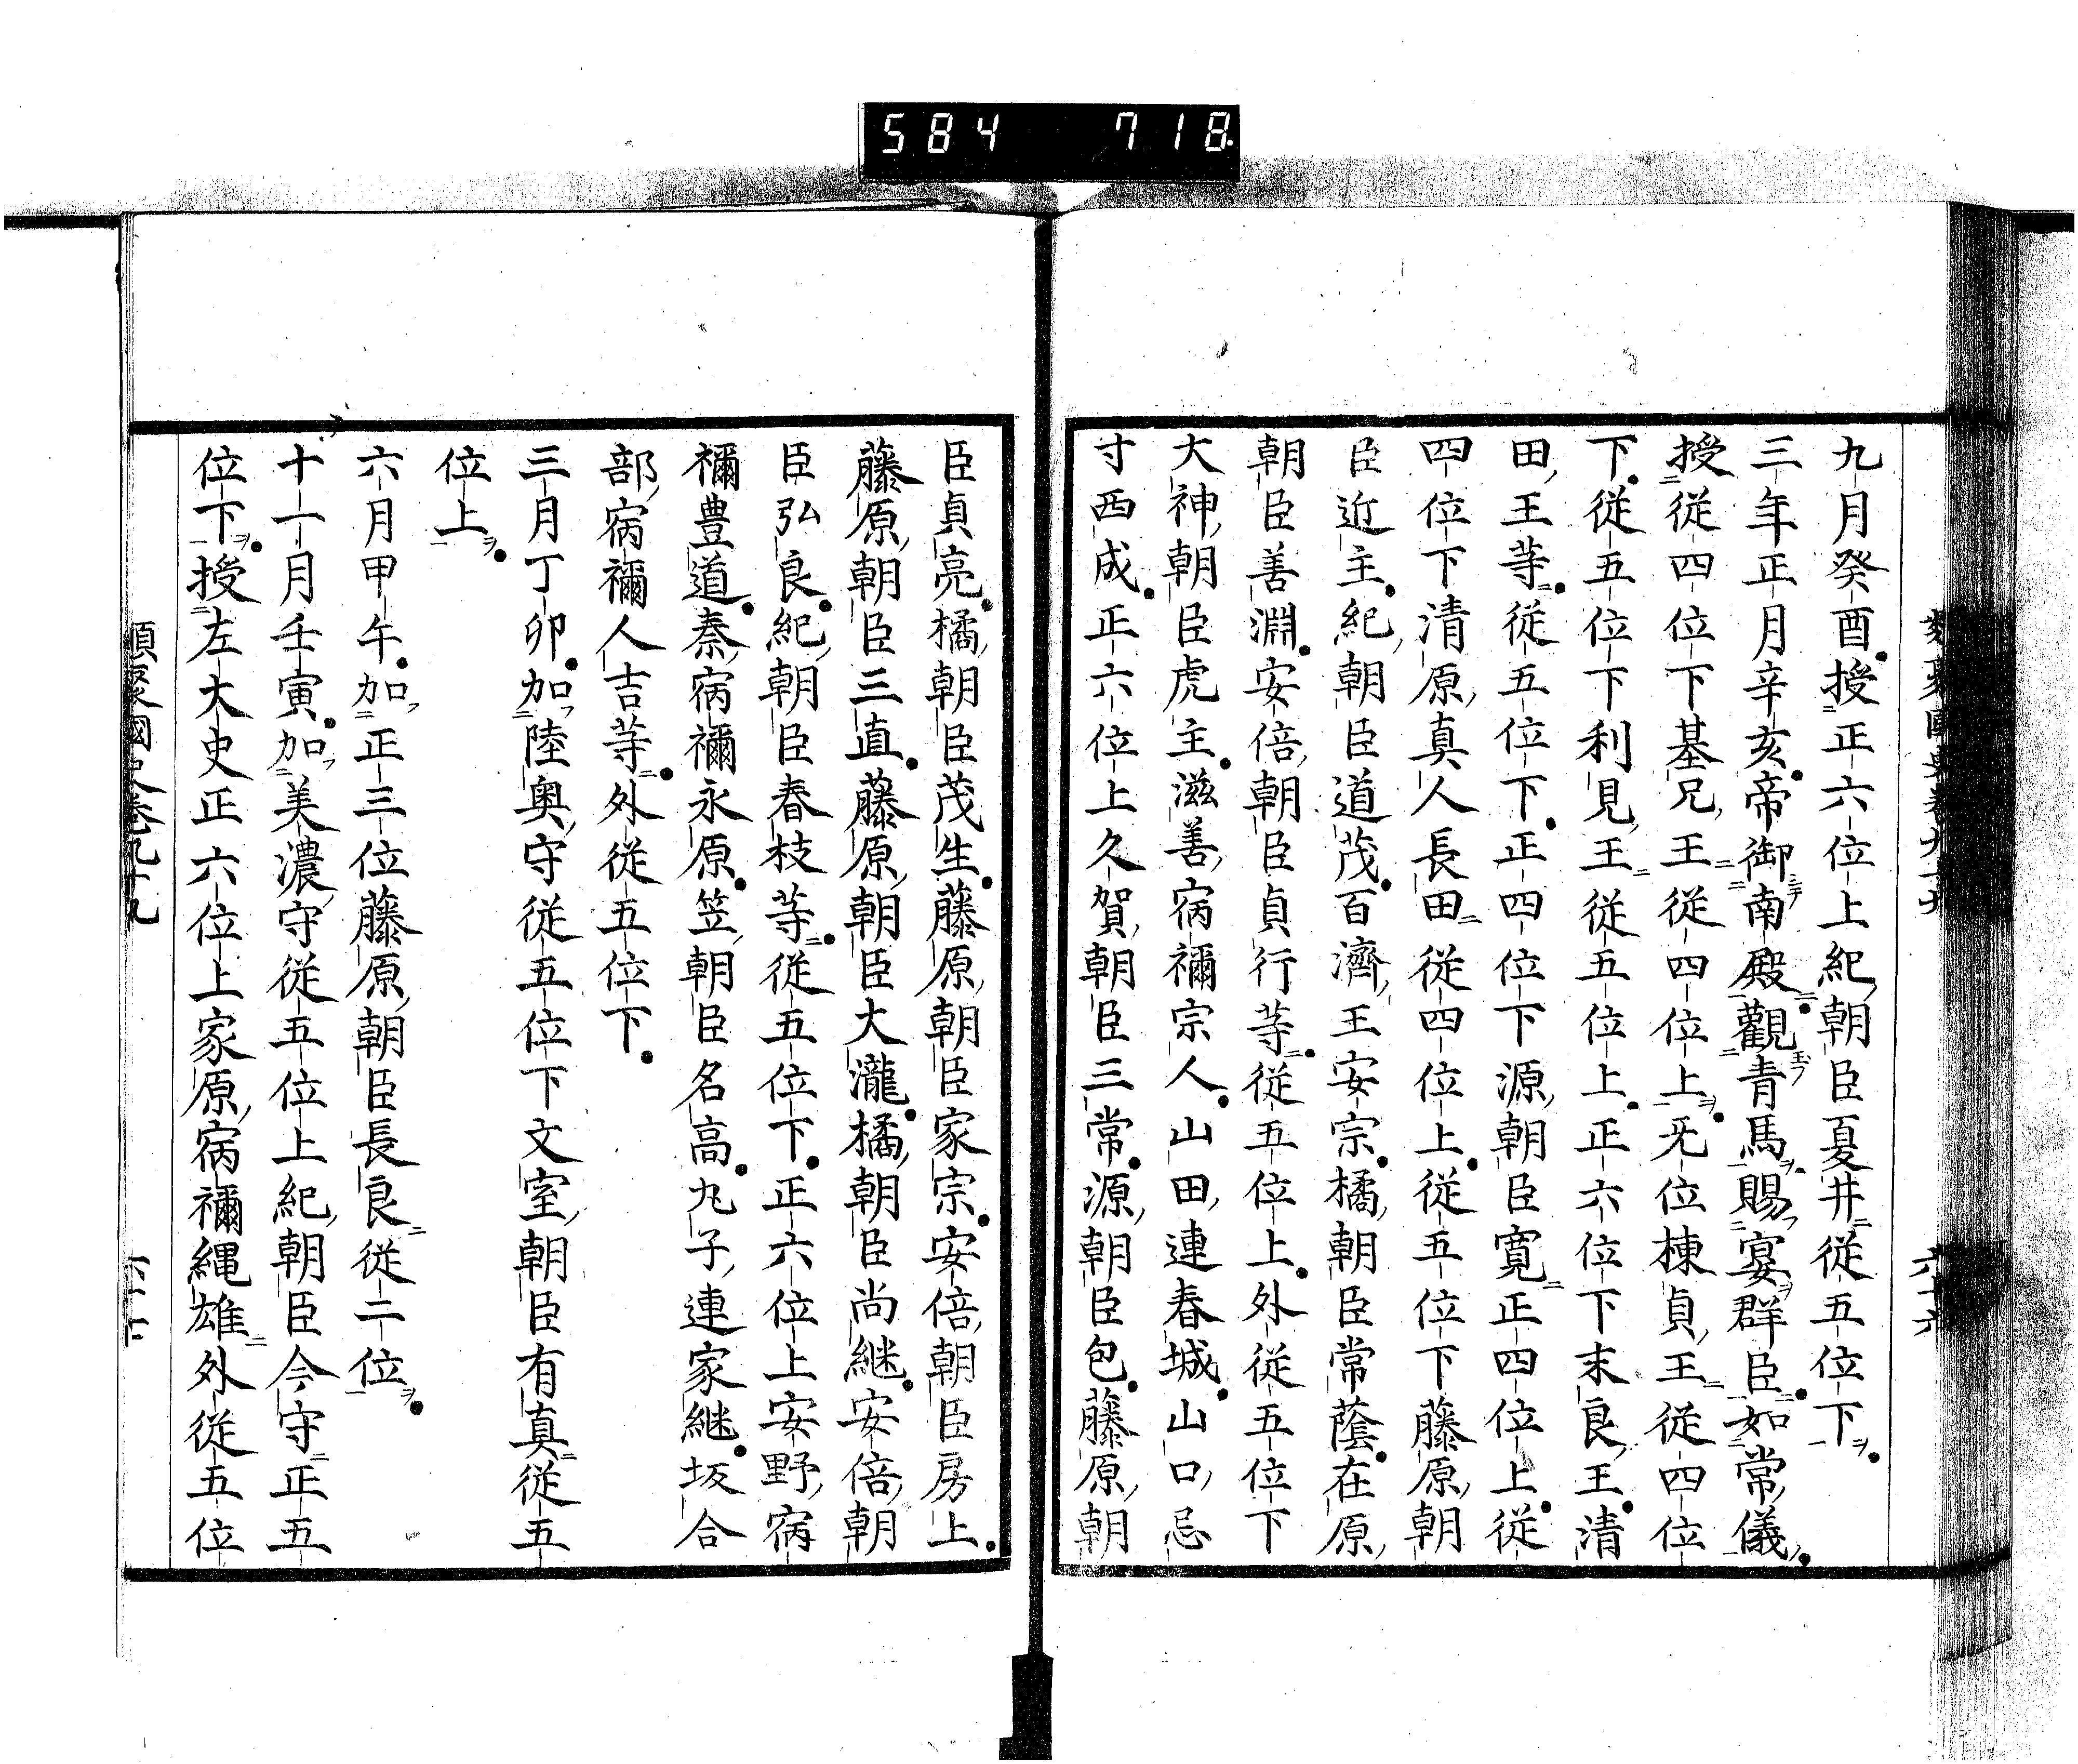 584 718
九月癸酉授正六位上紀朝臣夏井從五位下
三年正月辛亥帝御南殿觀青馬賜宴群臣如常儀
授從四位下基兄王從四位上无位棟貞王從四位
下從五位下利見王從五位上正六位下末良王清
田王等從五位下正四位下源朝臣寛正四位上從
四位下清原真人長田從四位上從五位下藤原朝
臣近主紀朝臣道茂百濟王安宗橘朝臣常蔭在原
朝臣善淵安倍朝臣貞行等從五位上外從五位下
大神朝臣虎主滋善宿禰宗人山田連春城山口忌
寸西成正六位上久賀朝臣三常源朝臣包藤原朝
臣貞亮橘朝臣茂生藤原朝臣家宗安倍朝臣房上
藤原朝臣三直藤原朝臣大瀧橘朝臣尚継安倍朝
臣弘良紀朝臣春枝等從五位下正六位上安野宿
禰豊道秦宿禰永原笠朝臣名高丸子連家継坂合
部宿禰人吉等外從五位下
三月丁卯加陸奥守從五位下文室朝臣有真從五
位上
六月甲午加正三位藤原朝臣長良從二位
十一月壬寅加美濃守從五位上紀朝臣今守正五
位下授左大史正六位上家原宿禰縄雄外從五位
類聚國史卷九十九